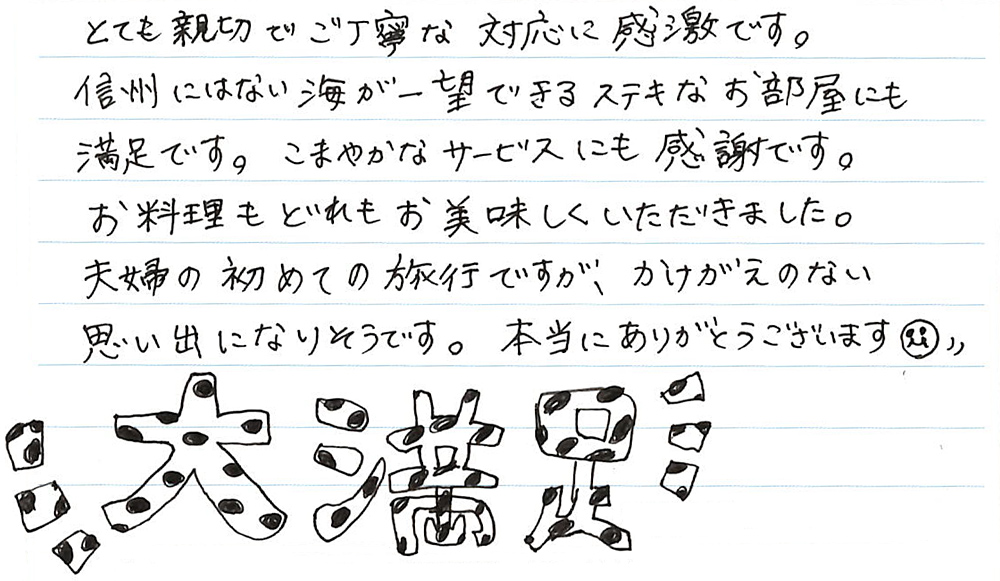 とても親切でご丁寧な対応に感激です。
信州にはない海が一望できるステキなお部屋にも
満足です。こまやかなサービスにも感謝です。
お料理もどれもお美味しくいただきました。
夫婦の初めての旅行ですが、かけがえのない
思い出になりそうです。本当にありがとうございます
大満足